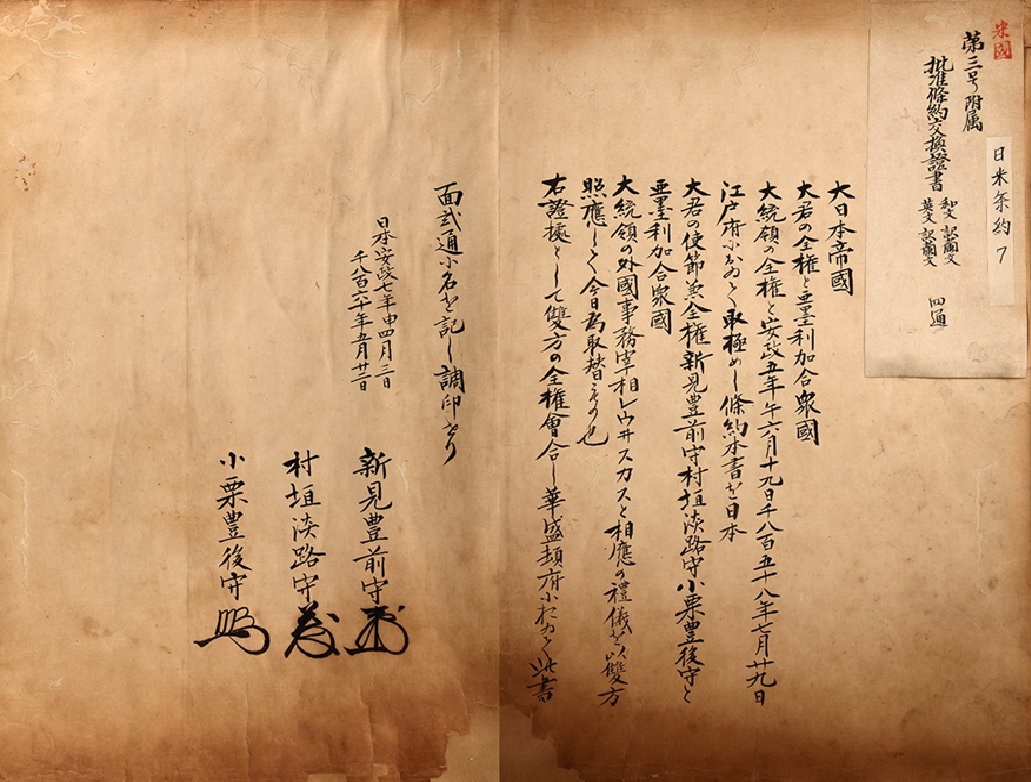 米國
第三号附属
批准條約交換證書
和文 訳蘭文
英文 訳蘭文
四通
日米条約 7
大日本帝國
大君の全権と亜墨利加合衆國
大統領の全権と安政五年午六月十九日千八百五十八年七月廿九日
江戸府小おゐて取極めし條約本書を日本
大君の使節兼全権新見豊前守村垣淡路守小栗豊後守と
亜墨利加合衆國
大統領の外國事務宰相レウヰスカスと相應の禮儀を以雙方
照應して今日為取替もの也
右證據として雙方の全権會合し華盛頓府小おゐて此書
面弐通小名を記し調印せり
日本安政七年申四月三日
千八百六十年五月廿二日
新見豊前守
村垣淡路守
小栗豊後守